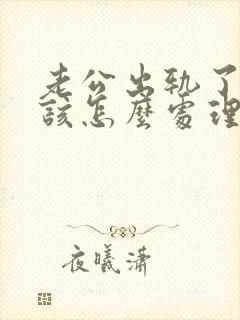 老公出轨了
该怎麽处理
夜曦潇